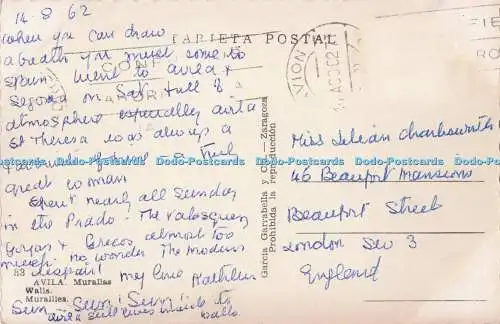 14.8.62
When you can draw
a breath you must come to
Spain. Went to Avila +
Segovia on Sat. full of
atmosphere especially Avila
St Theresa was always a
favourite of mine a truly
great woman
Spent nearly all Sunday
in the Prado. The Valasquez
Goyas + Grecos almost too
much! no wonder the modern
despair! my love Kathleen
Sun Sun! Sun!
Avila still lives inside its
walls.
83
AVILA. Murallas
Walls.
Murailles.
TARJETA POSTAL
AVION
Garcia Garrabella y Cía. — Zaragoza
Prohibida la reproducción
Miss Lilian
46 Beaufort Mansions
Beaufort Street
London SW 3
England
Dodo-Postcards Dodo-Postcards Dodo-Postcards Dodo-Postcards Dodo-Postcards